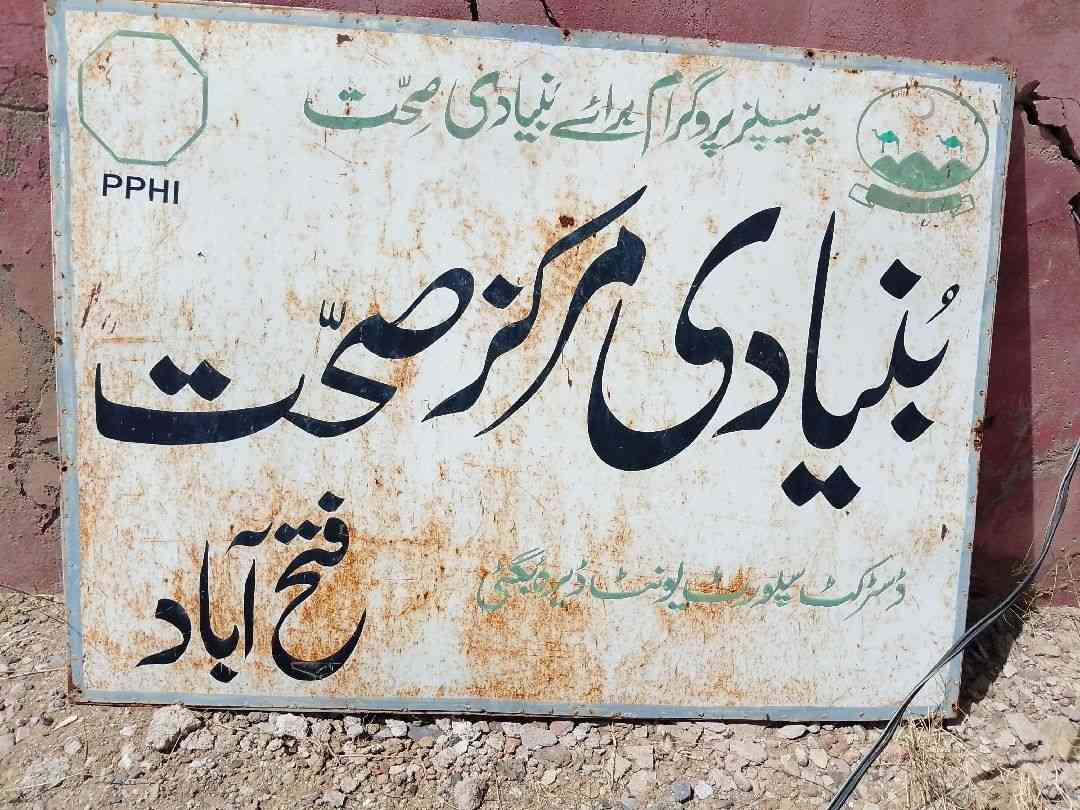 پیپلز پروگرام برائے بنیادی صحّت
PPHI
بُنیادی مرکز صحّت
ڈسٹرکٹ سپورٹ یونٹ ڈیرہ بگٹی
فتح آباد